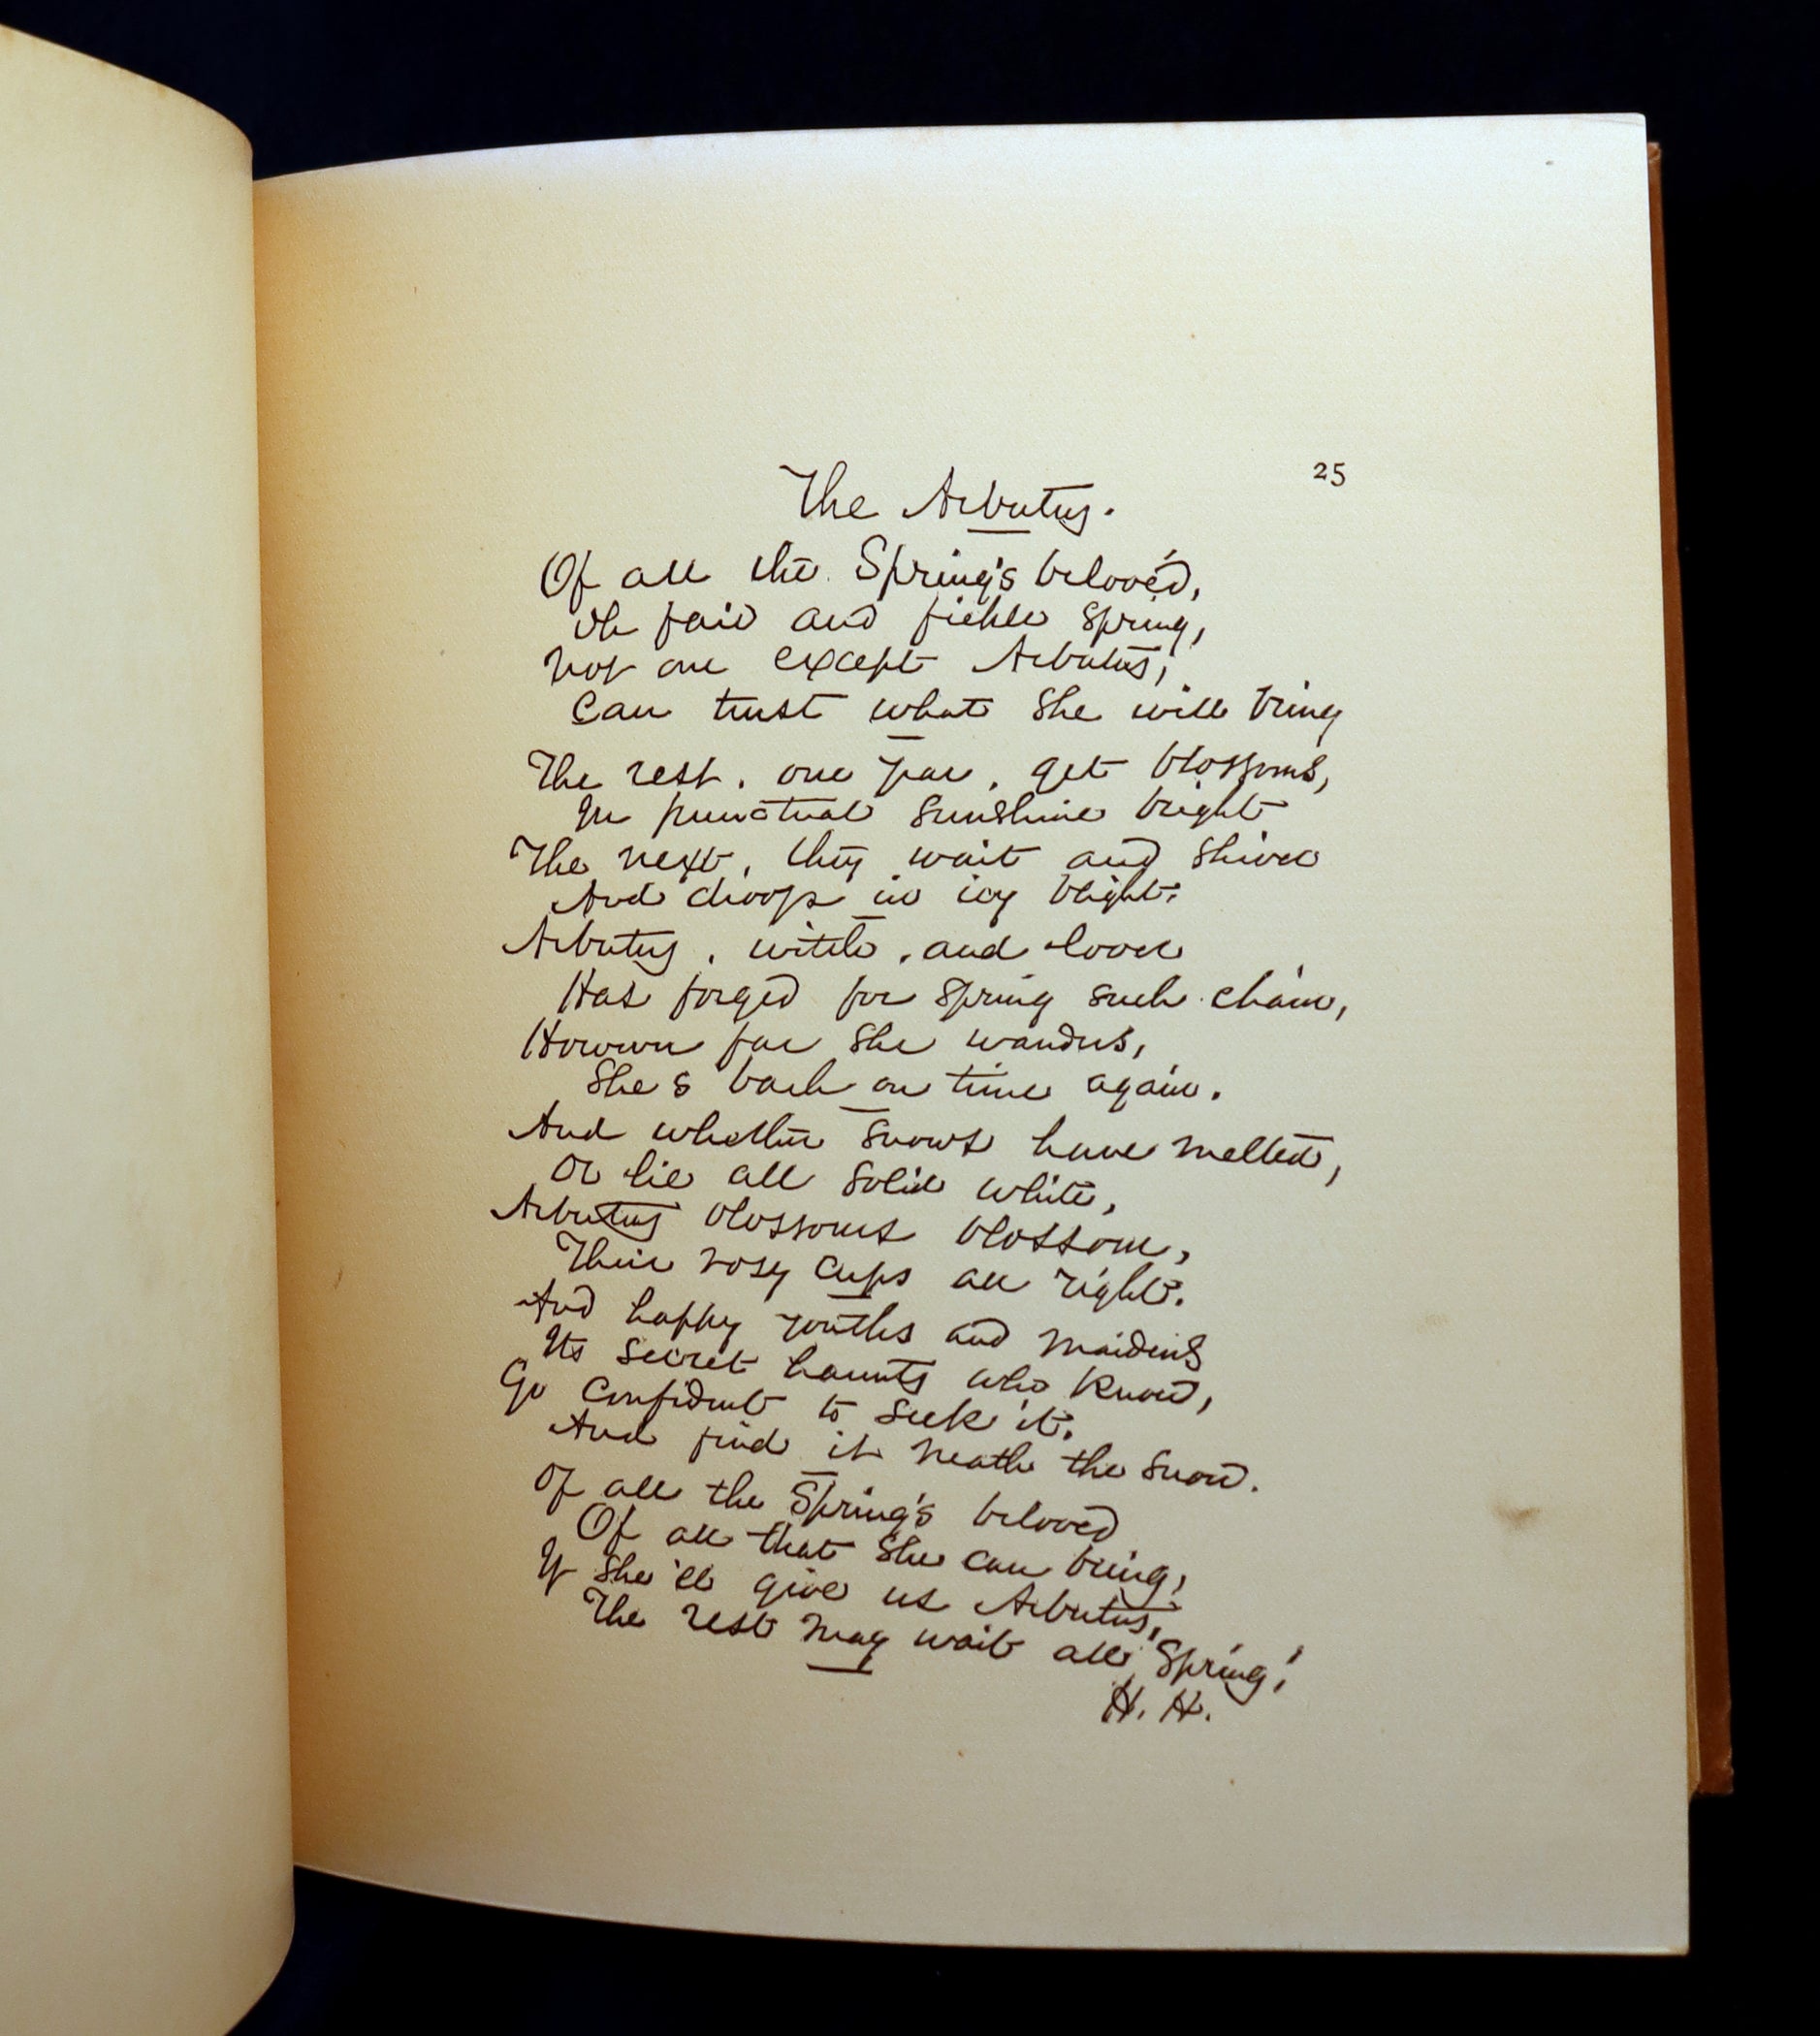 25
The Arbutus.
Of all the Spring's belovéd,
Oh fair and fickle Spring,
Not one except Arbutus,
Can trust what she will bring
The rest, one year, get blossoms,
In punctual sunshine bright
The next, they wait and shiver
And droop in icy blight.
Arbutus, and lover
Has forged for Spring such chain,
However far she wanders,
She s back on time again.
And whether snows have melted,
Or lie all solid white,
Arbutus blossoms blossom,
Their rosy cups all right.
And happy youths and maidens
Its secret haunts who know,
Go confident to seek it,
And find it neath the snow.
Of all the Spring's beloved
Of all that she can bring,
If she'll give us Arbutus,
The rest may wait all Spring!
H. H.